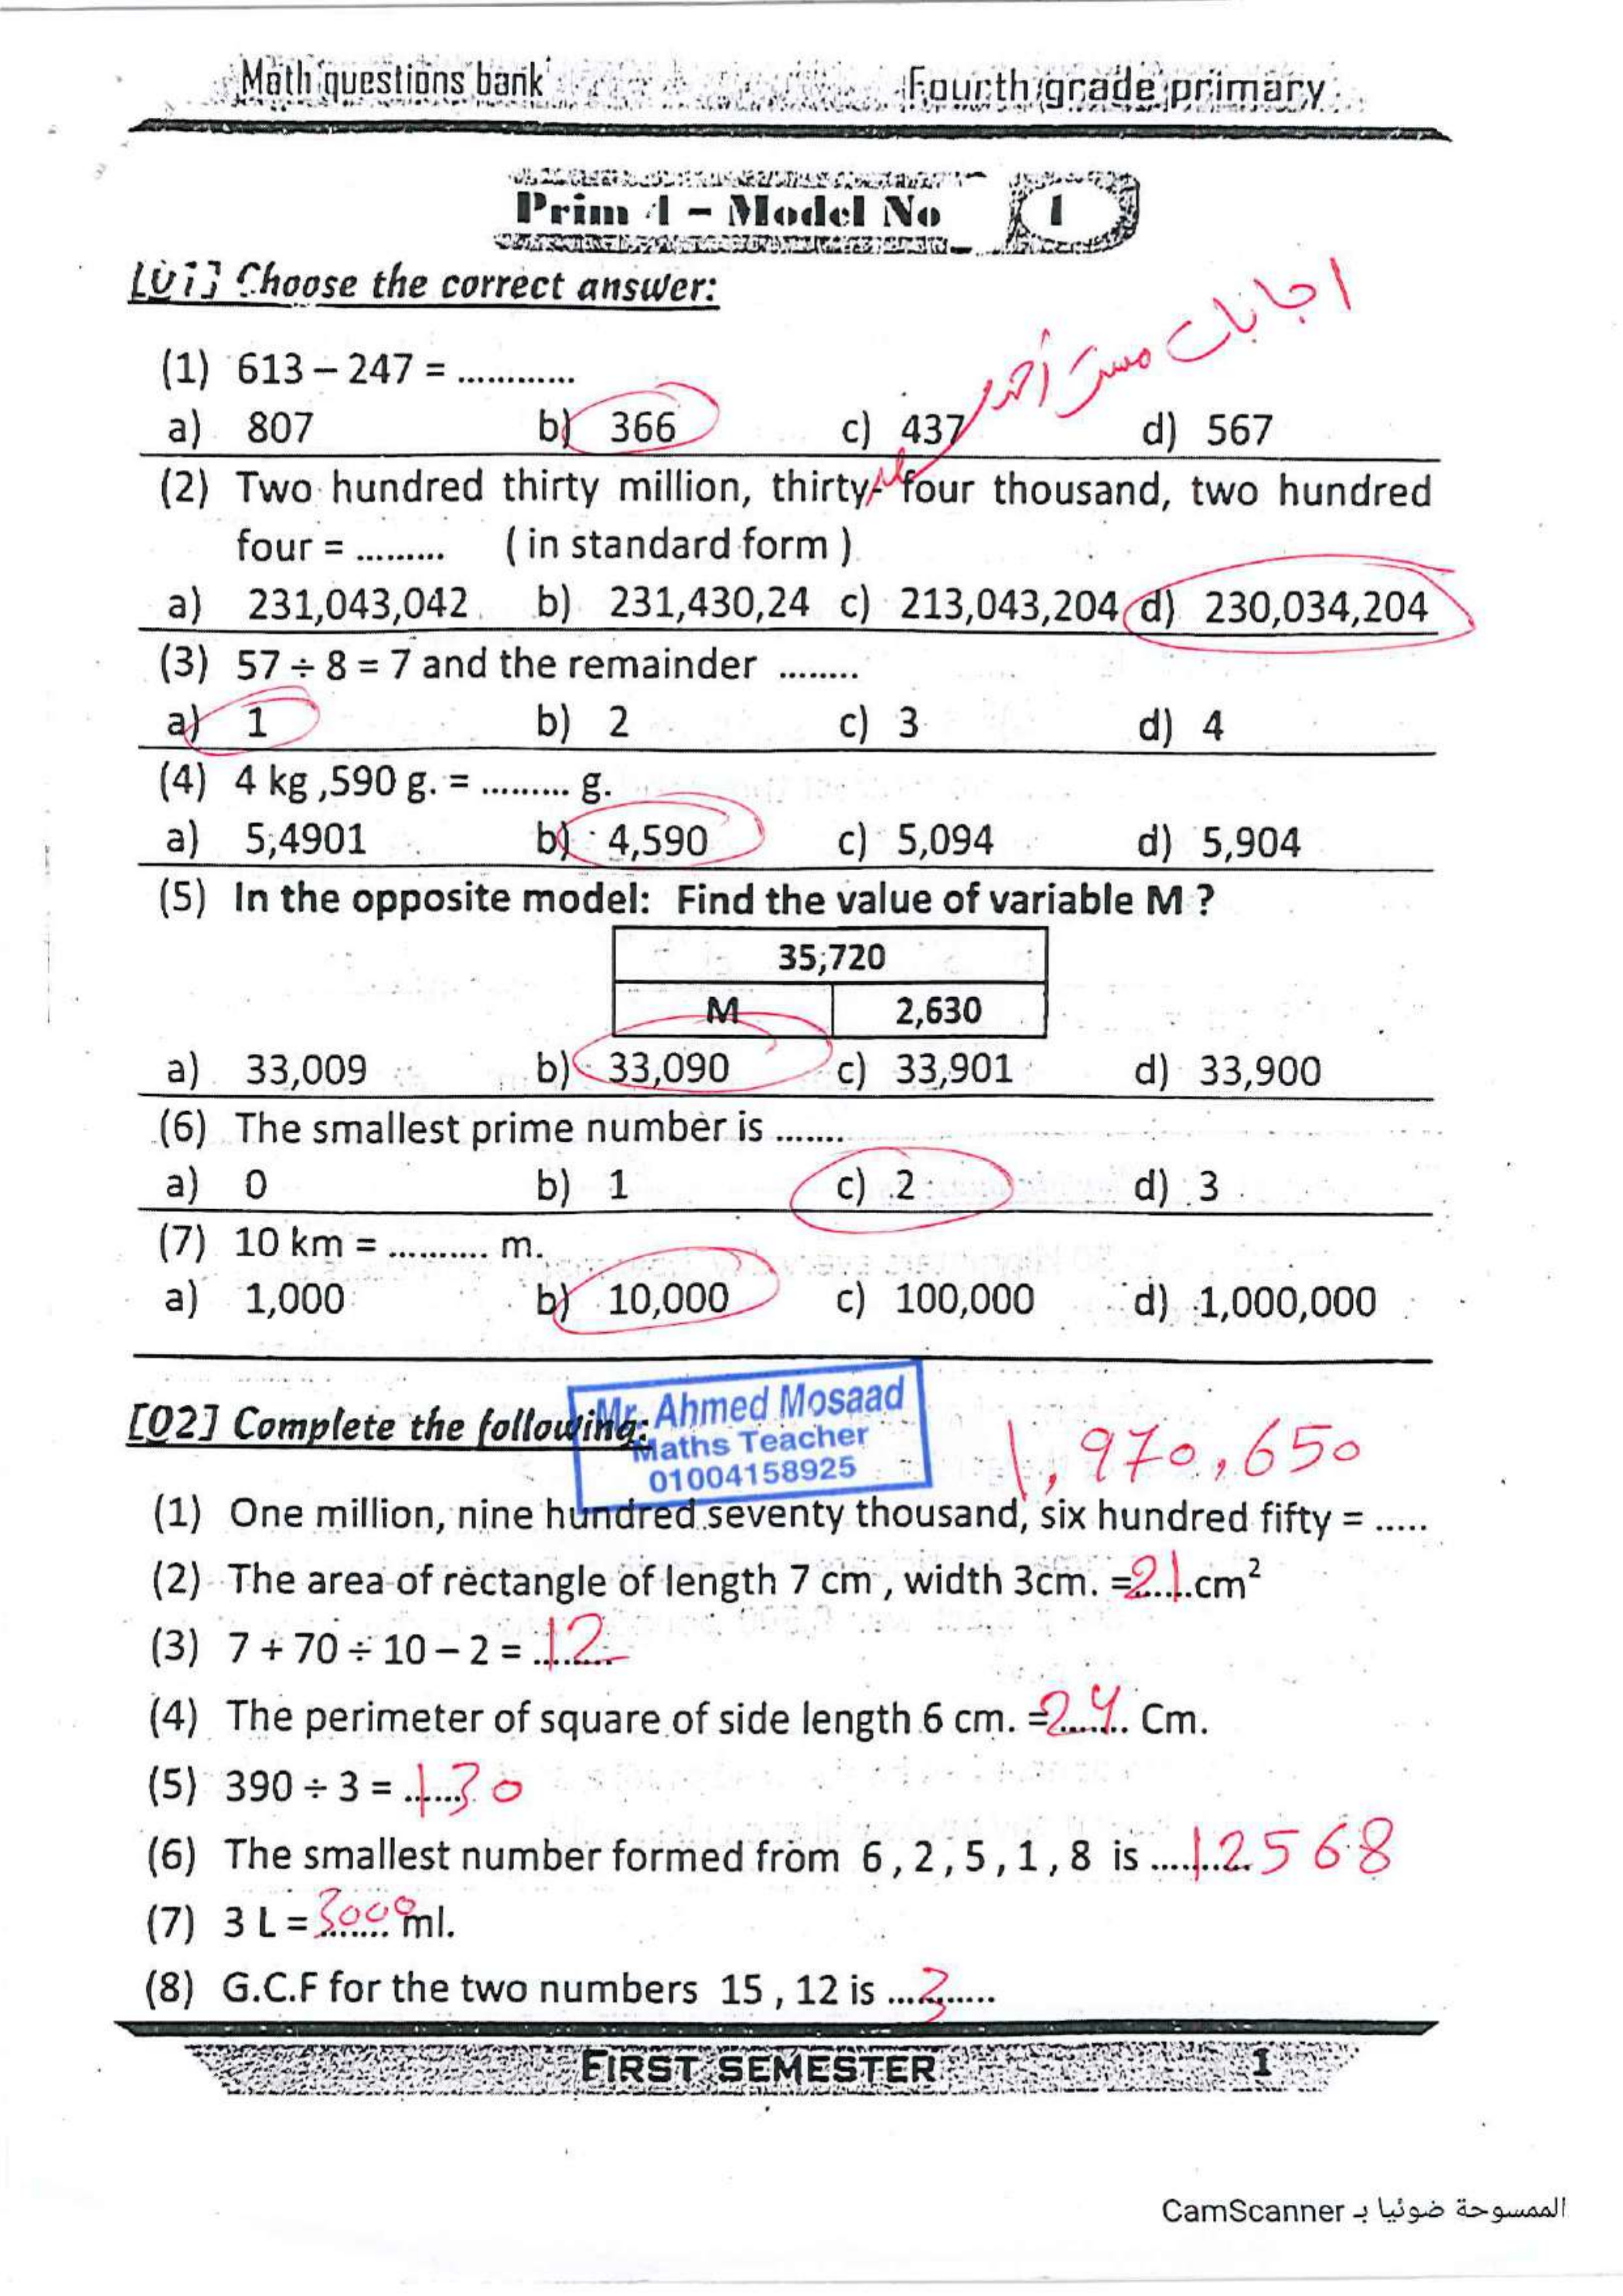 Math questions bank Fourth grade primary
Prim 4 – Model No 1
[01] Choose the correct answer:
اجابات مستر أحمد
(1) 613 – 247 = ............
a) 807 b) 366 c) 437 d) 567
(2) Two hundred thirty million, thirty- four thousand, two hundred
four = ......... ( in standard form )
a) 231,043,042 b) 231,430,24 c) 213,043,204 d) 230,034,204
(3) 57 ÷ 8 = 7 and the remainder ........
a) 1 b) 2 c) 3 d) 4
(4) 4 kg ,590 g. = ......... g.
a) 5,4901 b) 4,590 c) 5,094 d) 5,904
(5) In the opposite model: Find the value of variable M ?
35,720
M 2,630
a) 33,009 b) 33,090 c) 33,901 d) 33,900
(6) The smallest prime number is .......
a) 0 b) 1 c) 2 d) 3
(7) 10 km = .......... m.
a) 1,000 b) 10,000 c) 100,000 d) 1,000,000
[02] Complete the following:
Mr. Ahmed Mosaad
Maths Teacher
01004158925
1,970,650
(1) One million, nine hundred seventy thousand, six hundred fifty = .....
(2) The area of rectangle of length 7 cm , width 3cm. =21 cm²
(3) 7 + 70 ÷ 10 – 2 = 12
(4) The perimeter of square of side length 6 cm. =24 Cm.
(5) 390 ÷ 3 = 130
(6) The smallest number formed from 6 , 2 , 5 , 1 , 8 is 12568
(7) 3 L = 3000 ml.
(8) G.C.F for the two numbers 15 , 12 is 3
FIRST SEMESTER 1
الممسوحة ضوئيا بـ CamScanner